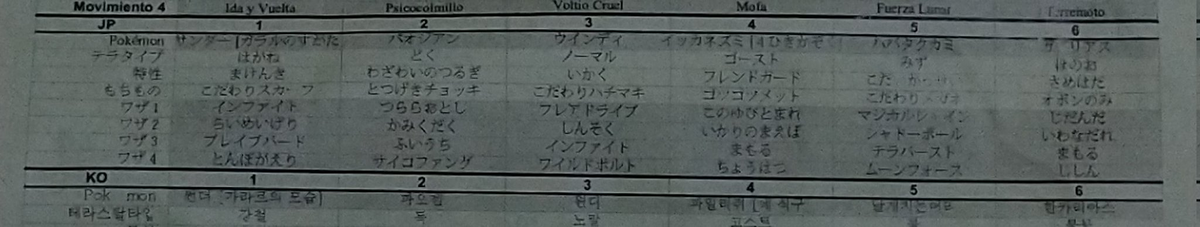 Movimiento 4 Ida y Vuelta Psicocolmillo Voltio Cruel Mofa Fuerza Lunar Terremoto
JP 1 2 3 4 5 6
Pokémon サンダー [ガラルのすがた パオジアン ウインディ イッカネズミ [4ひきかぞ ハバタクカミ
テラタイプ はがね どく ノーマル ゴースト みず ほのお
特性 まけんき わざわいのつるぎ いかく フレンドガード さめはだ
もちもの こだわりスカーフ とつげきチョッキ こだわりハチマキ ゴツゴツメット こだわり オボンのみ
ワザ1 インファイト つららおとし フレアドライブ このゆびとまれ マジカルシャイン じだんだ
ワザ2 らいめいげり かみくだく しんそく いかりのまえば シャドーボール いわなだれ
ワザ3 ブレイブバード ふいうち インファイト まもる テラバースト まもる
ワザ4 とんぼがえり サイコファング ワイルドボルト ちょうはつ ムーンフォース じしん
KO 1 2 3 4 5 6
Pok mon 썬더 [가라르의 모습] 파오젠 윈디 파밀리쥐 [네 식구 날개치는머리 한카리아스
테라스탈타입 강철 독 노말 고스트 물